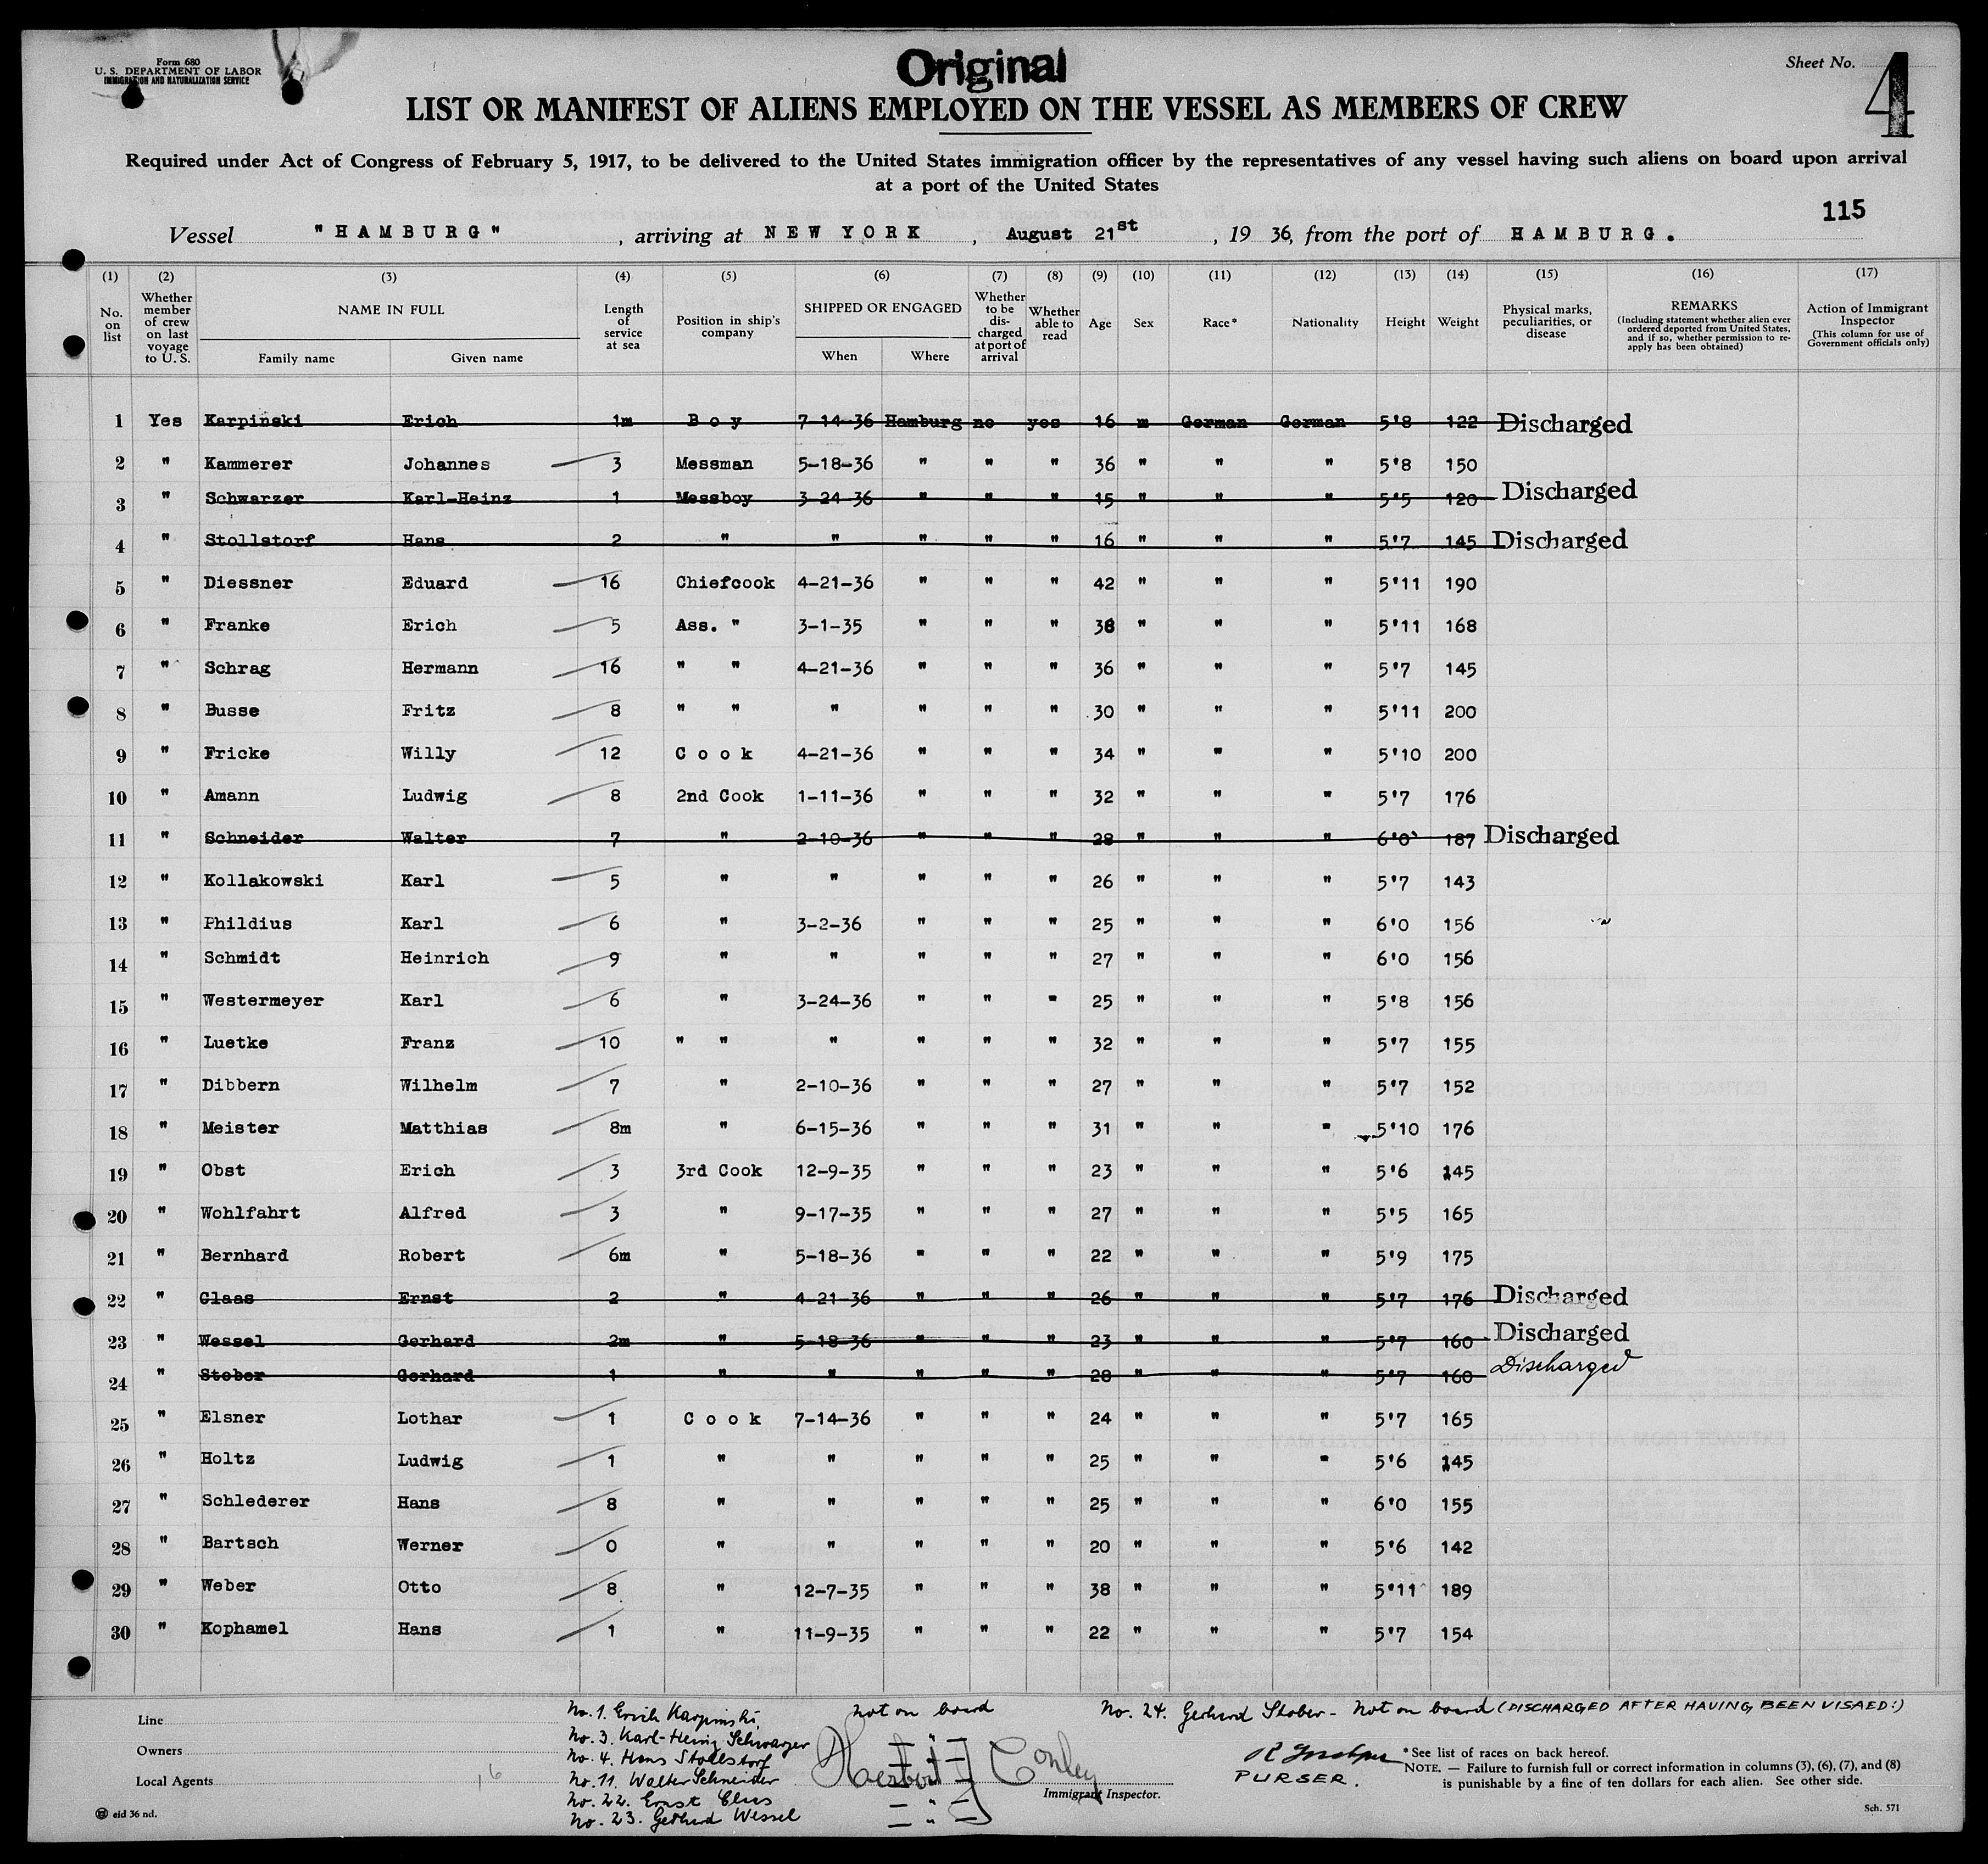 Form 680
U. S. DEPARTMENT OF LABOR
IMMIGRATION AND NATURALIZATION SERVICE
Original
Sheet No. 4
LIST OR MANIFEST OF ALIENS EMPLOYED ON THE VESSEL AS MEMBERS OF CREW
Required under Act of Congress of February 5, 1917, to be delivered to the United States immigration officer by the representatives of any vessel having such aliens on board upon arrival
at a port of the United States
115
Vessel "HAMBURG", arriving at NEW YORK, August 21st, 1936, from the port of HAMBURG.
(1) (2) (3) (4) (5) (6) (7) (8) (9) (10) (11) (12) (13) (14) (15) (16) (17)
No. on list
Whether member of crew on last voyage to U. S.
NAME IN FULL
Family name Given name
Length of service at sea
Position in ship's company
SHIPPED OR ENGAGED
When Where
Whether to be discharged at port of arrival
Whether able to read
Age
Sex
Race*
Nationality
Height
Weight
Physical marks, peculiarities, or disease
REMARKS
(Including statement whether alien ever ordered deported from United States, and if so, whether permission to reapply has been obtained)
Action of Immigrant Inspector
(This column for use of Government officials only)
1 Yes Karpinski Erich 1m Boy 7-14-36 Hamburg no yes 16 m German German 5'8 122 Discharged
2 " Kammerer Johannes 3 Messman 5-18-36 " " " 36 " " " 5'8 150
3 " Schwarzer Karl-Heinz 1 Messboy 3-24-36 " " " 15 " " " 5'5 120 Discharged
4 " Stollstorf Hans 2 " " " " " 16 " " " 5'7 145 Discharged
5 " Diessner Eduard 16 Chiefcook 4-21-36 " " " 42 " " " 5'11 190
6 " Franke Erich 5 Ass. " 3-1-35 " " " 38 " " " 5'11 168
7 " Schrag Hermann 16 " " 4-21-36 " " " 36 " " " 5'7 145
8 " Busse Fritz 8 " " " " " " 30 " " " 5'11 200
9 " Fricke Willy 12 Cook 4-21-36 " " " 34 " " " 5'10 200
10 " Amann Ludwig 8 2nd Cook 1-11-36 " " " 32 " " " 5'7 176
11 " Schneider Walter 7 " 2-10-36 " " " 28 " " " 6'0 187 Discharged
12 " Kollakowski Karl 5 " " " " " 26 " " " 5'7 143
13 " Phildius Karl 6 " 3-2-36 " " " 25 " " " 6'0 156
14 " Schmidt Heinrich 9 " " " " " 27 " " " 6'0 156
15 " Westermeyer Karl 6 " 3-24-36 " " " 25 " " " 5'8 156
16 " Luetke Franz 10 " " " " " " 32 " " " 5'7 155
17 " Dibbern Wilhelm 7 " 2-10-36 " " " 27 " " " 5'7 152
18 " Meister Matthias 8m " 6-15-36 " " " 31 " " " 5'10 176
19 " Obst Erich 3 3rd Cook 12-9-35 " " " 23 " " " 5'6 145
20 " Wohlfahrt Alfred 3 " 9-17-35 " " " 27 " " " 5'5 165
21 " Bernhard Robert 6m " 5-18-36 " " " 22 " " " 5'9 175
22 " Claas Ernst 2 " 4-21-36 " " " 26 " " " 5'7 176 Discharged
23 " Wessel Gerhard 2m " 5-18-36 " " " 23 " " " 5'7 160 Discharged
24 " Stober Gerhard 1 " " " " " 28 " " " 5'7 160 Discharged
25 " Elsner Lothar 1 Cook 7-14-36 " " " 24 " " " 5'7 165
26 " Holtz Ludwig 1 " " " " " 25 " " " 5'6 145
27 " Schlederer Hans 8 " " " " " 25 " " " 6'0 155
28 " Bartsch Werner 0 " " " " " 20 " " " 5'6 142
29 " Weber Otto 8 " 12-7-35 " " " 38 " " " 5'11 189
30 " Kophamel Hans 1 " 11-9-35 " " " 22 " " " 5'7 154
Line
Owners
Local Agents
eid 36 nd.
16
No. 1. Erich Karpinski, not on board
No. 3. Karl-Heinz Schwarzer — " —
No. 4. Hans Stollstorf — " —
No. 11. Walter Schneider — " —
No. 22. Ernst Claas — " —
No. 23. Gerhard Wessel — " —
Herbert J Conley
Immigrant Inspector.
No. 24. Gerhard Stober - Not on board (DISCHARGED AFTER HAVING BEEN VISAED!)
PURSER.
*See list of races on back hereof.
NOTE. — Failure to furnish full or correct information in columns (3), (6), (7), and (8)
is punishable by a fine of ten dollars for each alien. See other side.
Sch. 571